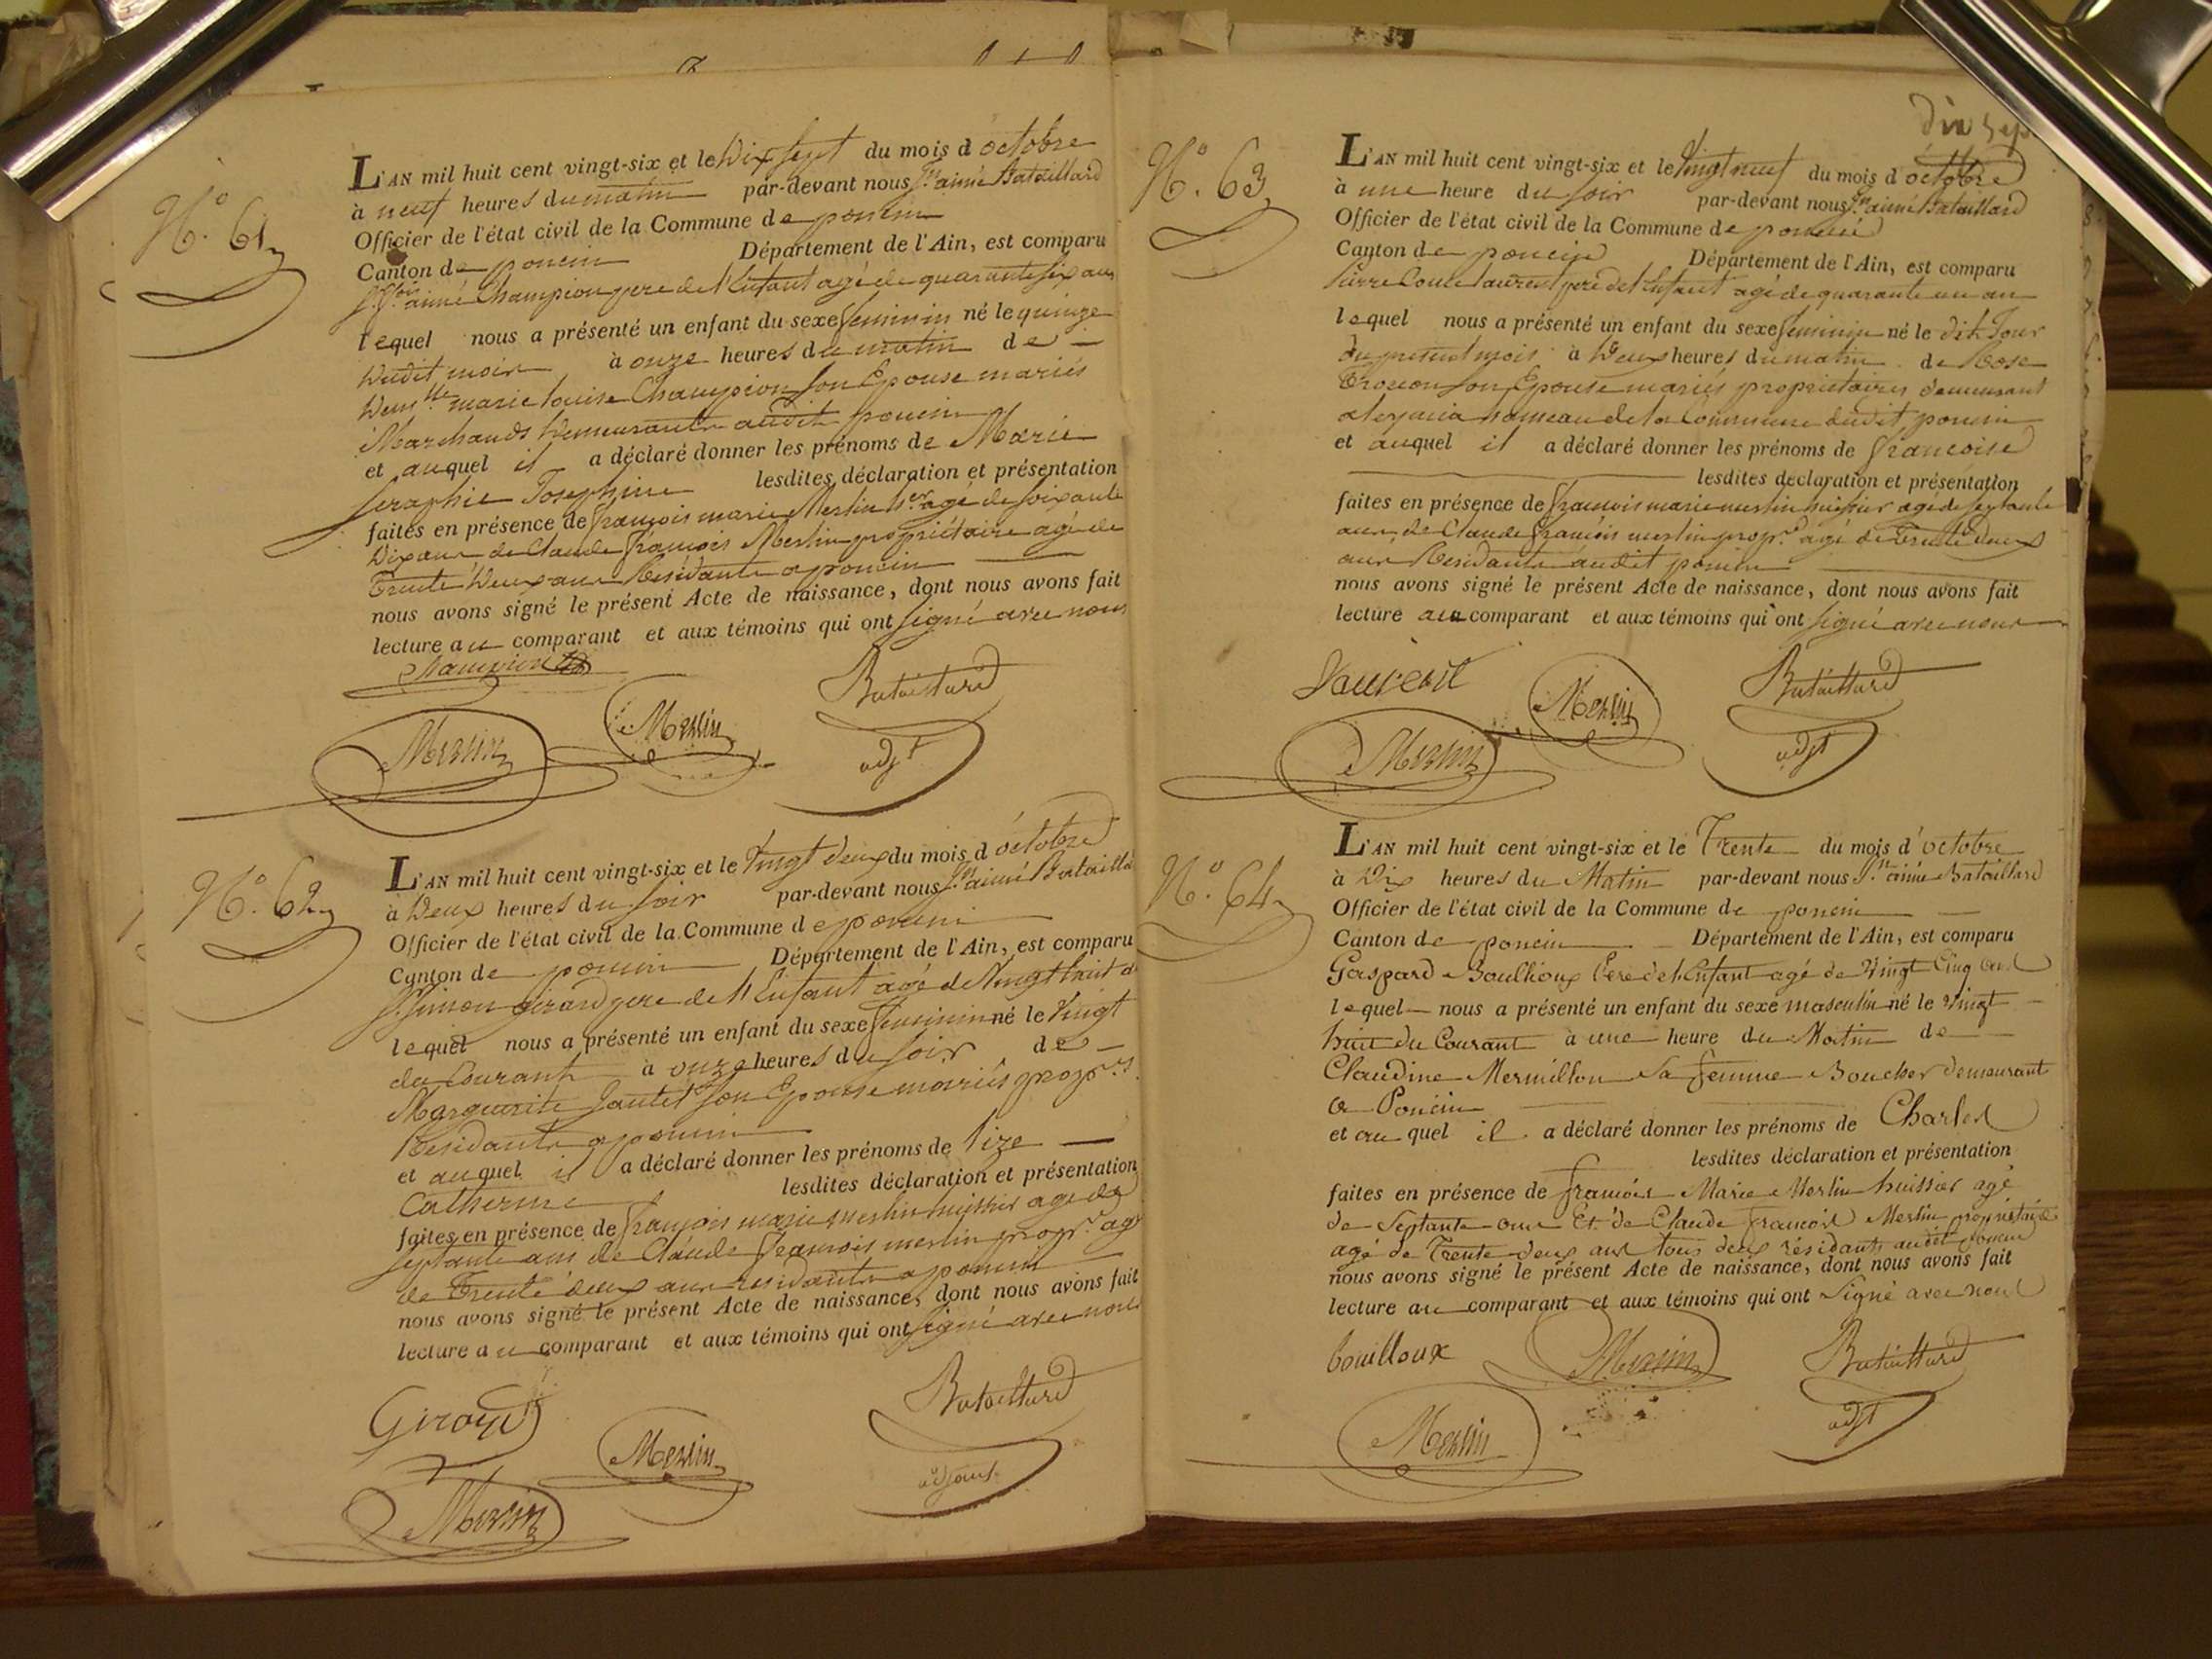 N.º 61
L'AN mil huit cent vingt-six et le Dix sept du mois d'octobre
à neuf heures du matin par-devant nous Sr. aimé Bataillard
Officier de l'état civil de la Commune de poncin
Canton de poncin Département de l'Ain, est comparu
aimé Champion pere de l'Enfant agé de quarante six ans
lequel nous a présenté un enfant du sexe feminin né le quinze
dudit mois à onze heures du matin de
Dem.lle marie louise Champion son Epouse mariés
Marchands Demeurants audit poncin
et auquel il a déclaré donner les prénoms de Marie
Seraphie Josephine lesdites déclaration et présentation
faites en présence de françois marie Merlin h.er agé de soixante
Dix ans de Claude françois Merlin propriétaire agé de
Trente Deux ans Residants a poncin
nous avons signé le présent Acte de naissance, dont nous avons fait
lecture au comparant et aux témoins qui ont signé avec nous
Champion
Merlin Merlin Bataillard
adjt
N.º 62
L'AN mil huit cent vingt-six et le Vingt deux du mois d'octobre
à Deux heures du soir par-devant nous Sr. aimé Bataillard
Officier de l'état civil de la Commune de poncin
Canton de poncin Département de l'Ain, est comparu
Sr. simon girard pere de l'Enfant agé de Vingt huit
lequel nous a présenté un enfant du sexe feminin né le Vingt
du Courant à onze heures du soir de
Marguerite Jantet son Epouse mariés propr.s
Residants a poncin
et auquel il a déclaré donner les prénoms de lize
Catherine lesdites déclaration et présentation
faites en présence de françois marie merlin huissier agé de
septante ans de Claude françois merlin propr. agé
de Trente deux ans residants a poncin
nous avons signé le présent Acte de naissance, dont nous avons fait
lecture au comparant et aux témoins qui ont signé avec nous
Girard
Merlin Merlin Bataillard
adjoint
dix sept
N.º 63
L'AN mil huit cent vingt-six et le Vingt neuf du mois d'octobre
à une heure du soir par-devant nous Sr. aimé Bataillard
Officier de l'état civil de la Commune de poncin
Canton de poncin Département de l'Ain, est comparu
laurent pere de l'Enfant agé de quarante un an
lequel nous a présenté un enfant du sexe feminin né le dit Jour
du present mois à Deux heures du matin de Rose
son Epouse mariés propriétaires demeurant
hameau de la Commune dudit poncin
et auquel il a déclaré donner les prénoms de françoise
lesdites déclaration et présentation
faites en présence de françois marie merlin huissier agé de septante
ans, de Claude françois merlin propr. agé de Trente deux
ans Residants audit poncin
nous avons signé le présent Acte de naissance, dont nous avons fait
lecture au comparant et aux témoins qui ont signé avec nous
Laurent
Merlin Merlin Bataillard
adjt
N.º 64
L'AN mil huit cent vingt-six et le Trente du mois d'octobre
à Dix heures du Matin par-devant nous Sr. aimé Bataillard
Officier de l'état civil de la Commune de poncin
Canton de poncin Département de l'Ain, est comparu
Gaspard Boullioux Pere de l'Enfant agé de Vingt Cinq ans
lequel nous a présenté un enfant du sexe masculin né le vingt
huit du Courant à une heure du Matin de
Claudine Mermillon Sa femme Boucher demeurant
a Poncin
et au quel il a déclaré donner les prénoms de Charles
lesdites déclaration et présentation
faites en présence de françois Marie Merlin huissier agé
de Septante ans Et de Claude françois Merlin propriétaire
agé de Trente deux ans tous deux résidants audit poncin
nous avons signé le présent Acte de naissance, dont nous avons fait
lecture au comparant et aux témoins qui ont Signé avec nous
bouilloux Merlin Bataillard
Merlin adjt